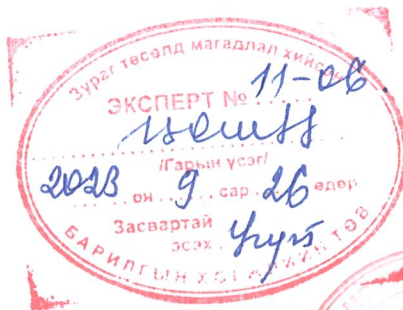 Зураг төсөлд магадлал хийсэн
ЭКСПЕРТ № 11-06
/Гарын үсэг/
2023 он 9 сар 26 өдөр
Засвартай
эсэх
БАРИЛГЫН ХӨГЖЛИЙН ТӨВ